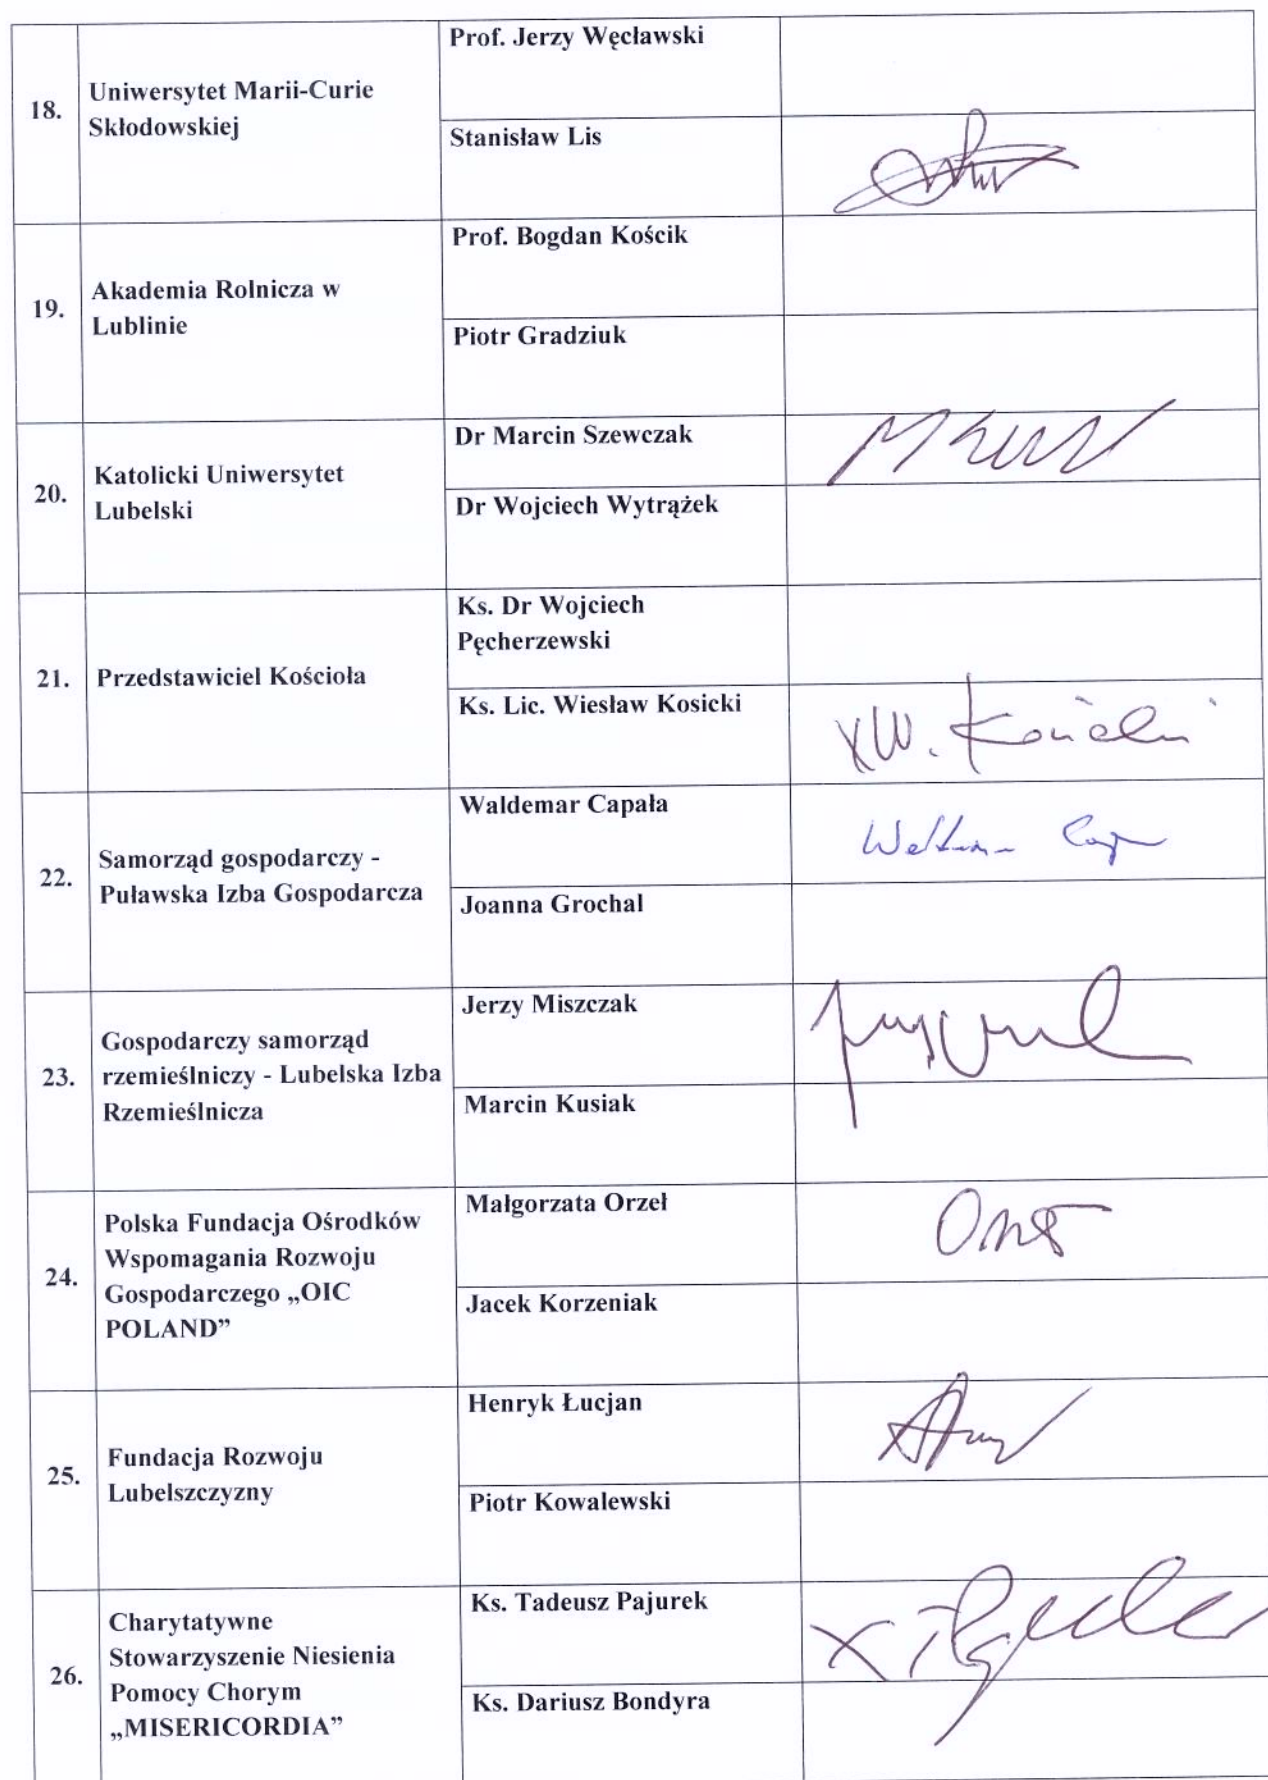 18.
Uniwersytet Marii-Curie
Skłodowskiej
Prof. Jerzy Węcławski
Stanisław Lis
19.
Akademia Rolnicza w
Lublinie
Prof. Bogdan Kościk
Piotr Gradziuk
20.
Katolicki Uniwersytet
Lubelski
Dr Marcin Szewczak
Dr Wojciech Wytrążek
21.
Przedstawiciel Kościoła
Ks. Dr Wojciech
Pęcherzewski
Ks. Lic. Wiesław Kosicki
XW. Kosicki
22.
Samorząd gospodarczy -
Puławska Izba Gospodarcza
Waldemar Capała
Joanna Grochal
23.
Gospodarczy samorząd
rzemieślniczy - Lubelska Izba
Rzemieślnicza
Jerzy Miszczak
Marcin Kusiak
24.
Polska Fundacja Ośrodków
Wspomagania Rozwoju
Gospodarczego „OIC
POLAND”
Małgorzata Orzeł
Jacek Korzeniak
25.
Fundacja Rozwoju
Lubelszczyzny
Henryk Łucjan
Piotr Kowalewski
26.
Charytatywne
Stowarzyszenie Niesienia
Pomocy Chorym
„MISERICORDIA”
Ks. Tadeusz Pajurek
Ks. Dariusz Bondyra